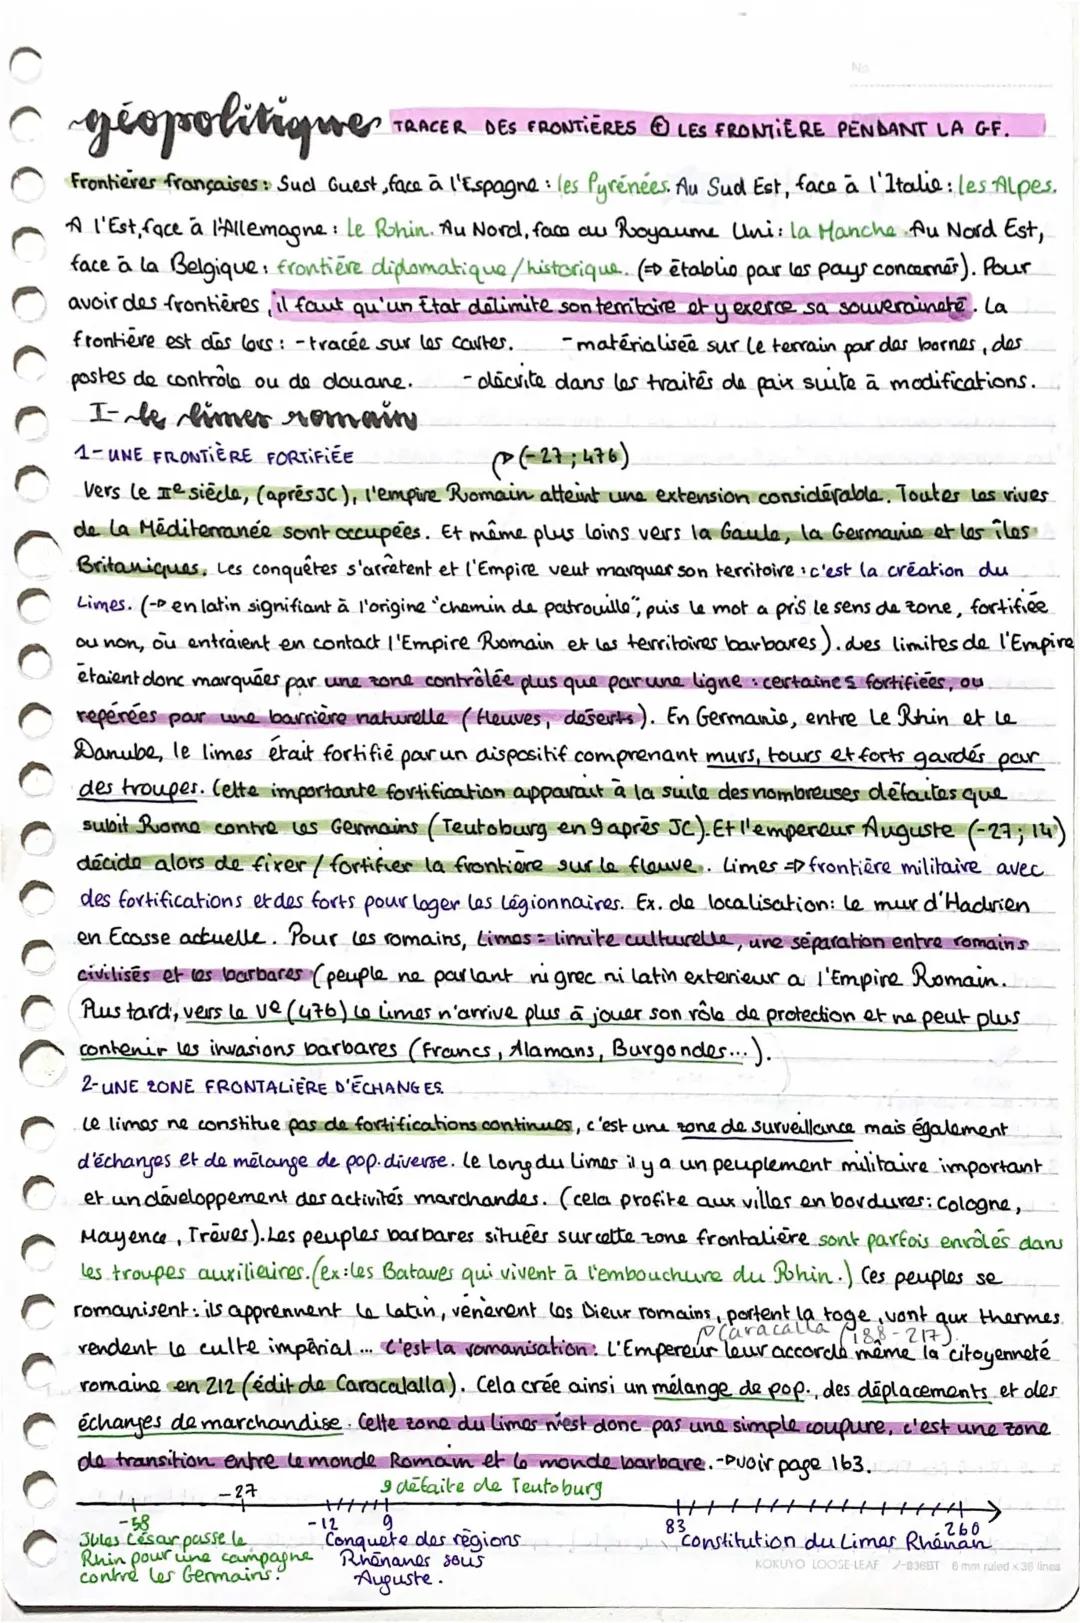 No
géopolitique TRACER DES FRONTIÈRES ⊕ LES FRONTIÈRE PENDANT LA GF.
Frontières françaises : Sud Ouest, face à l'Espagne : les Pyrénées. Au Sud Est, face à l'Italie : les Alpes.
A l'Est, face à l'Allemagne : Le Rhin. Au Nord, face au Royaume Uni : la Manche. Au Nord Est,
face à la Belgique : frontière diplomatique / historique. (=> établie par les pays concernés). Pour
avoir des frontières, il faut qu'un État délimite son territoire et y exerce sa souveraineté. La
frontière est dès lors : - tracée sur les cartes. - matérialisée sur le terrain par des bornes, des
postes de contrôle ou de douane. - décrite dans les traités de paix suite à modifications.
I- le limes romain
1- UNE FRONTIÈRE FORTIFIÉE (-27 ; 476)
Vers le IIe siècle, (après JC), l'empire Romain atteint une extension considérable. Toutes les rives
de la Méditerranée sont occupées. Et même plus loins vers la Gaule, la Germanie et les îles
Britaniques. Les conquêtes s'arrêtent et l'Empire veut marquer son territoire : c'est la création du
Limes. (-> en latin signifiant à l'origine "chemin de patrouille", puis le mot a pris le sens de zone, fortifiée
ou non, où entraient en contact l'Empire Romain et les territoires barbares). Les limites de l'Empire
étaient donc marquées par une zone contrôlée plus que par une ligne : certaines fortifiées, ou
repérées par une barrière naturelle (fleuves, déserts). En Germanie, entre Le Rhin et Le
Danube, le limes était fortifié par un dispositif comprenant murs, tours et forts gardés par
des troupes. Cette importante fortification apparaît à la suite des nombreuses défaites que
subit Rome contre les Germains (Teutoburg en 9 après JC). Et l'empereur Auguste (-27 ; 14)
décide alors de fixer / fortifier la frontière sur le fleuve. Limes => frontière militaire avec
des fortifications et des forts pour loger les légionnaires. Ex. de localisation : le mur d'Hadrien
en Ecosse actuelle. Pour les romains, Limes = limite culturelle, une séparation entre romains
civilisés et les barbares (peuple ne parlant ni grec ni latin exterieur a l'Empire Romain.
Plus tard, vers le Ve (476) le limes n'arrive plus à jouer son rôle de protection et ne peut plus
contenir les invasions barbares (Francs, Alamans, Burgondes...).
2- UNE ZONE FRONTALIÈRE D'ÉCHANGES
Le limes ne constitue pas de fortifications continues, c'est une zone de surveillance mais également
d'échanges et de mélange de pop. diverse. Le long du limes il y a un peuplement militaire important
et un développement des activités marchandes. (cela profite aux villes en bordures : Cologne,
Mayence, Trèves). Les peuples barbares situées sur cette zone frontalière sont parfois enrôlés dans
les troupes auxiliaires. (ex : les Bataves qui vivent à l'embouchure du Rhin.) Ces peuples se
romanisent : ils apprennent le latin, vénèrent les Dieux romains, portent la toge, vont aux thermes
Caracalla (188-217).
rendent le culte impérial... C'est la romanisation : L'Empereur leur accorde même la citoyenneté
romaine en 212 (édit de Caracalalla). Cela crée ainsi un mélange de pop., des déplacements et des
échanges de marchandise. Cette zone du limes n'est donc pas une simple coupure, c'est une zone
de transition entre le monde Romain et le monde barbare. -> voir page 163.
-27 9 défaite de Teutoburg
-58 -12 9 83 260
Jules César passe le Conquête des régions Constitution du Limes Rhénan
Rhin pour une campagne Rhénanes sous
contre les Germains. Auguste.
KOKUYO LOOSE-LEAF ノ-836BT 6 mm ruled × 36 lines